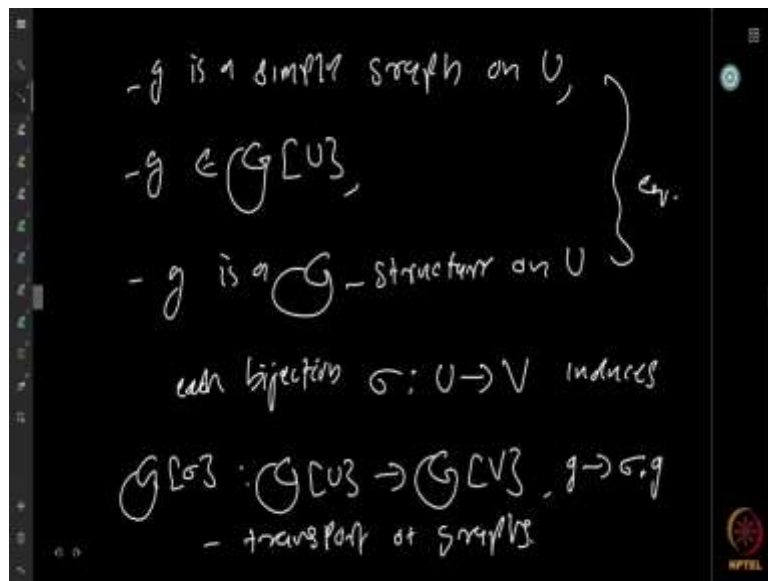 - g is a simple graph on U,
- g ∈ G[U],
- g is a G - structure on U
eqv.
each bijection σ: U → V induces
G[σ] : G[U] → G[V], g → σ.g
- transport of graphs.
NPTEL